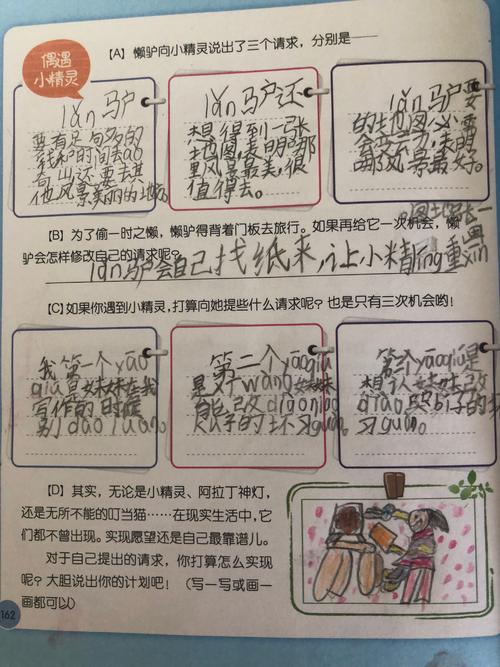 偶遇
小精灵
【A】懒驴向小精灵说出了三个请求，分别是——
lǎn 马户
要有足句多的
钱和时间去ao
奇山还要去其
他风景美丽的地方
lǎn 马户还
想得到一张
地图表明哪
里风景最美，很
值得去。
lǎn 马户要
的地图必需
会立力，表明
哪风景最好。
【B】为了偷一时之懒，懒驴得背着门板去旅行。如果再给它一次机会，懒
驴会怎样修改自己的请求呢？
lǎn 驴会自己找纸来，让小精líng重xīn
画
【C】如果你遇到小精灵，打算向她提些什么请求呢？也是只有三次机会哟！
我第一个yāo
qiú是妹妹在我
写作的时候
别dǎo luàn。
第二个yāoqiú
是xī wàng妹妹
能改diào
子的坏习guàn。
第三个yāoqiú是
想让妹妹改
diào 子的坏
习guàn。
【D】其实，无论是小精灵、阿拉丁神灯，
还是无所不能的叮当猫……在现实生活中，它
们都不曾出现。实现愿望还是自己最靠谱儿。
对于自己提出的请求，你打算怎么实现
呢？大胆说出你的计划吧！（写一写或画一
画都可以）
162